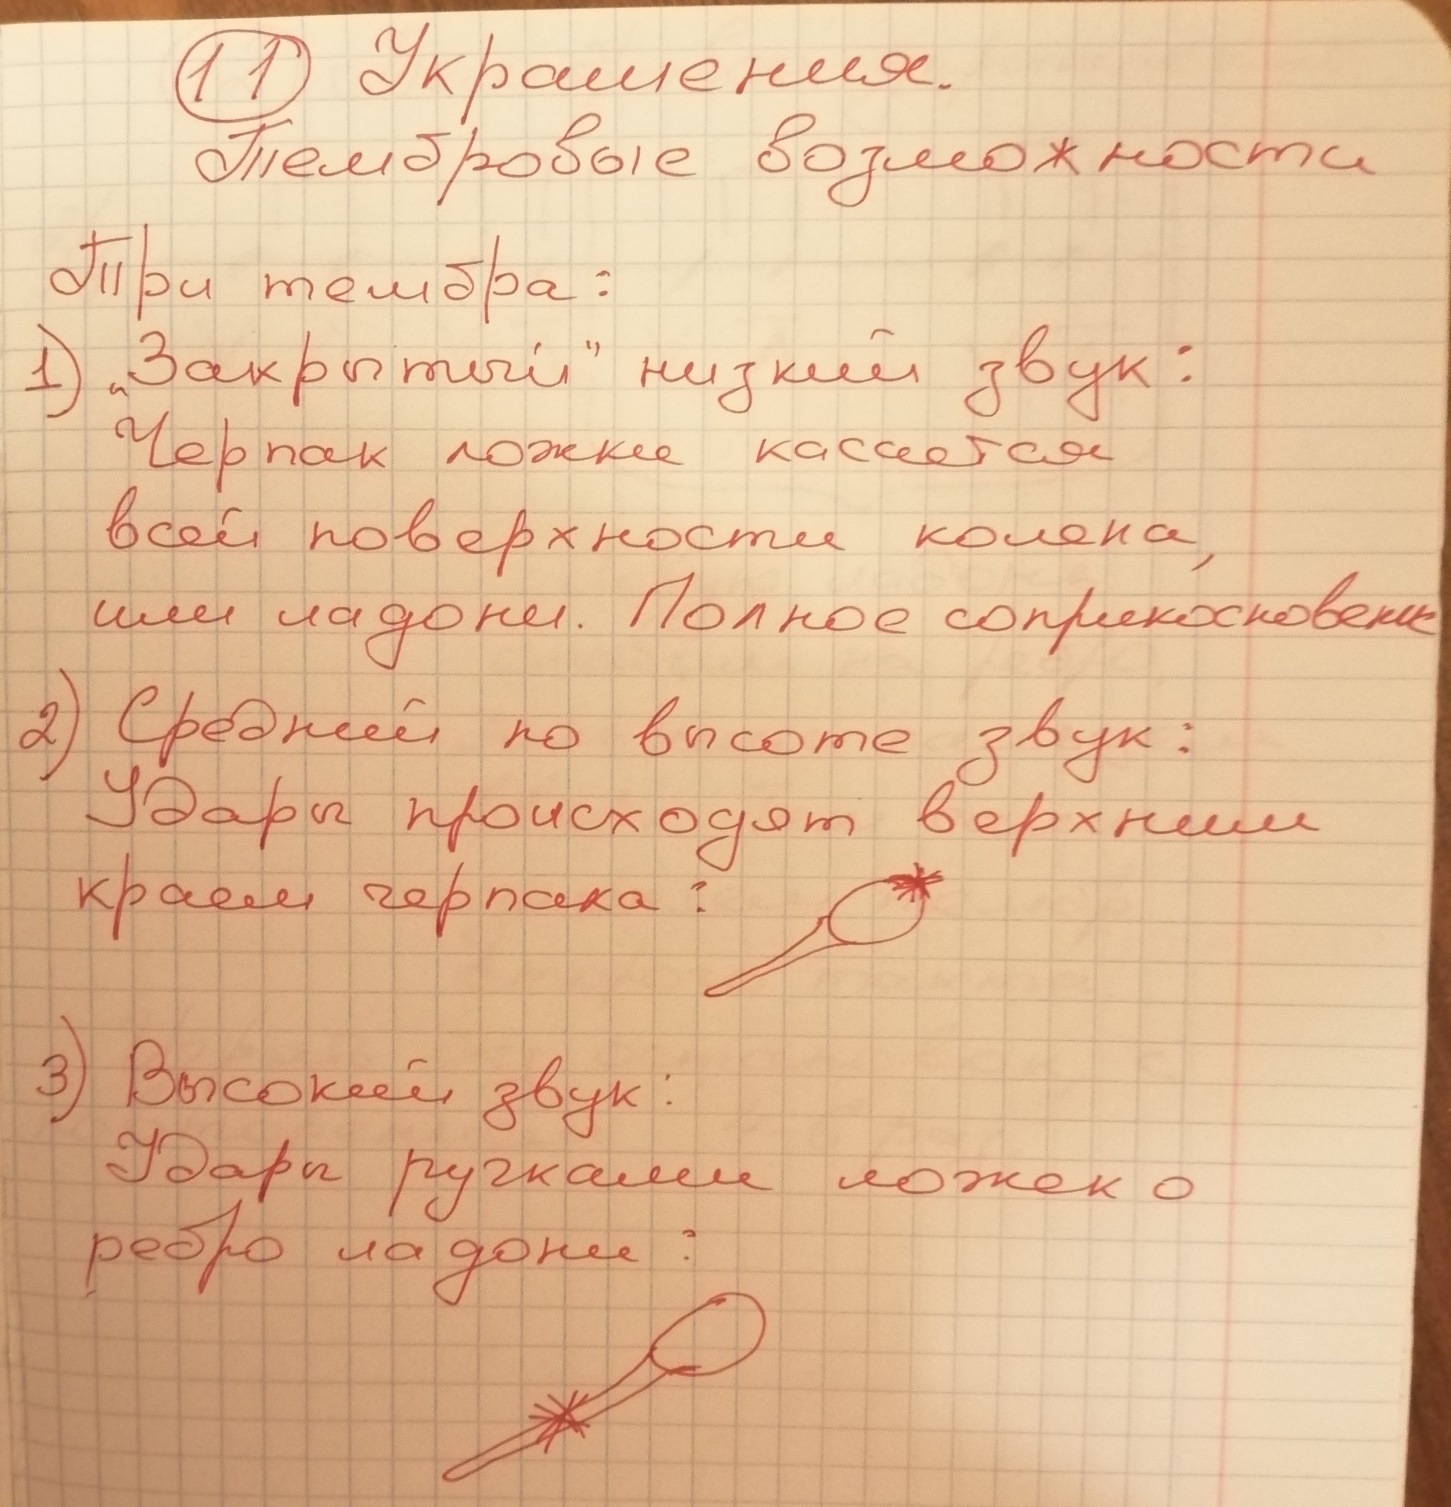 11 Украшения.
Тембровые возможности
Три тембра:
1) „Закрытый" низкий звук:
Черпак ложки касается
всей поверхности колена,
или ладони. Полное соприкосновение
2) Средний по высоте звук:
Удары происходят верхним
краем черпака:
3) Высокий звук:
Удары ручками ложек о
ребро ладони: